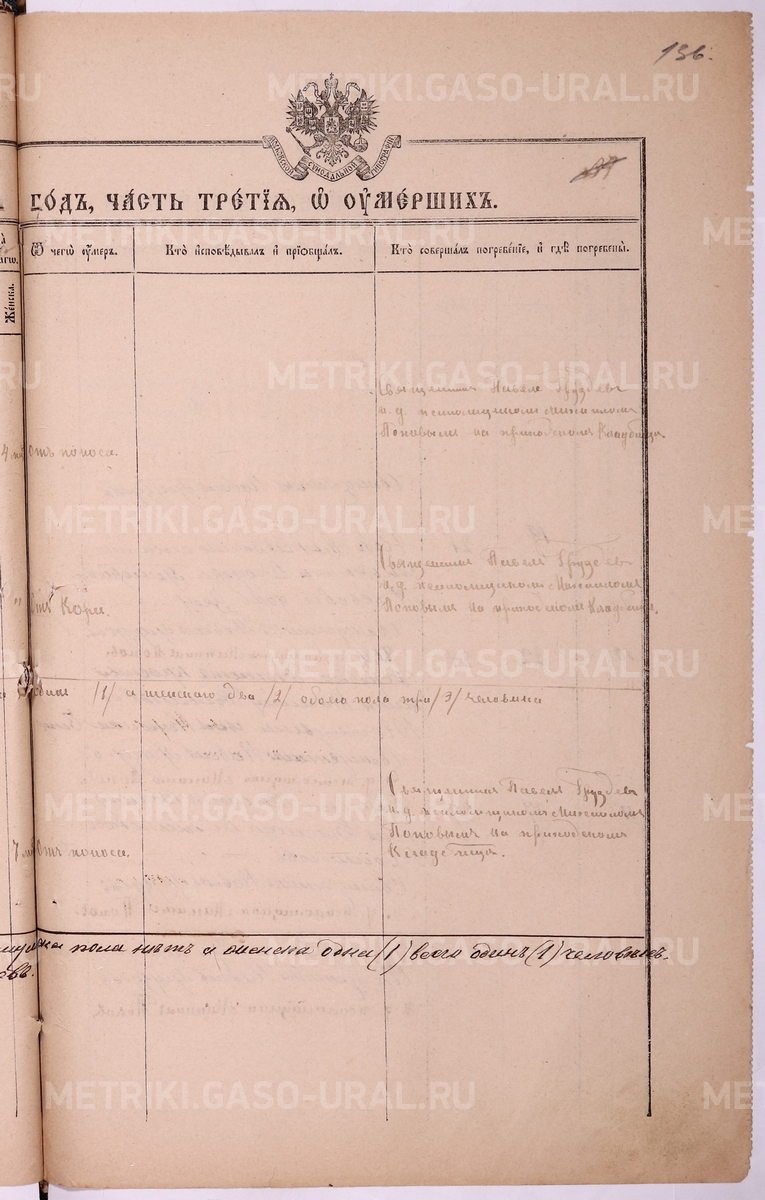 136.
МОСКОВСКОЙ СѴНОДАЛЬНОЙ ТИПОГРАФІИ
го́дъ, ча́сть тре́тїѧ, ѡ҆ ᲂу҆ме́ршихъ.
Ѿ чегѡ̀ ᲂу҆́меръ.
Кто̀ и҆сповѣ́дывалъ и҆ прїѡбща́лъ.
Кто̀ соверша́лъ погребе́нїе, и҆ гдѣ̀ погребены̀.
Же́нска.
Священникъ Павелъ Груздевъ
и.д. псаломщикомъ Михаиломъ
Поповымъ на приходскомъ Кладбищѣ
отъ поноса.
Священникъ Павелъ Груздевъ
и.д. псаломщикомъ Михаиломъ
Поповымъ на приходскомъ Кладбищѣ.
отъ Кори.
одинъ /1/ а женскаго два /2/ обоего пола три /3/ человѣка
Священникъ Павелъ Груздевъ
и.д. псаломщикомъ Михаиломъ
Поповымъ на приходскомъ
Кладбищѣ.
отъ поноса.
пола нѣтъ а женска одна (1) всего одинъ (1) человѣкъ.
METRIKI.GASO-URAL.RU